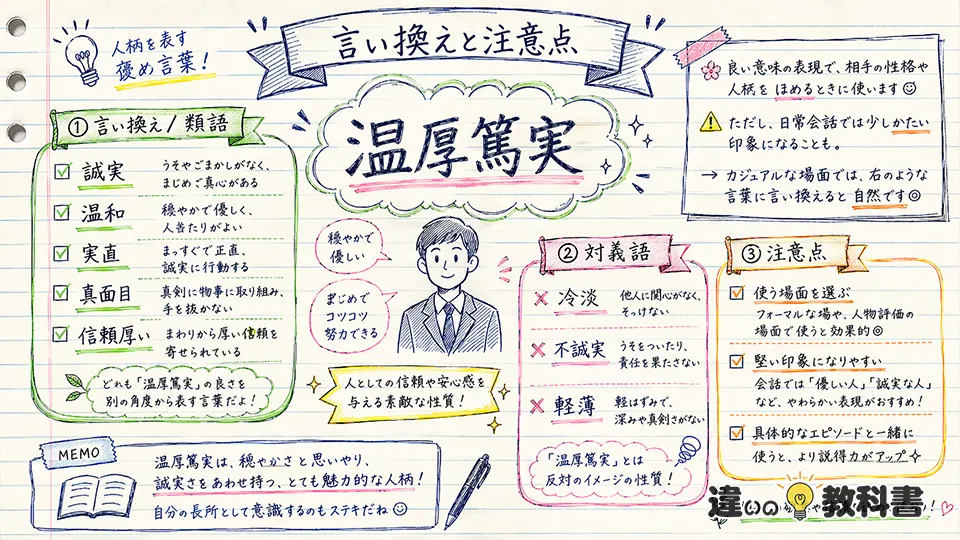 人柄を表す
褒め言葉！
言い換えと注意点
温厚篤実
良い意味の表現で、相手の性格や
人柄を ほめるときに使います
ただし、日常会話では少しかたい
印象になることも。
→ カジュアルな場面では、右のような
言葉に言い換えると 自然です◎
① 言い換え / 類語
誠実
うそやごまかしがなく、
まじめで真心がある
温和
穏やかで優しく、
人当たりがよい
実直
まっすぐで正直、
誠実に行動する
真面目
真剣に物事に取り組み、
手を抜かない
信頼厚い
まわりから厚い信頼を
寄せられている
どれも「温厚篤実」の良さを
別の角度から表す言葉だよ！
穏やかで
優しい
まじめで
コツコツ
努力できる
人としての信頼や安心感を
与える素敵な性質！
② 対義語
冷淡
他人に関心がなく、
そっけない
不誠実
うそをついたり、
責任を果たさない
軽薄
軽はずみで、
深みや真剣さがない
「温厚篤実」とは
反対のイメージの性質！
③ 注意点
使う場面を選ぶ
フォーマルな場や、人物評価の
場面で使うと効果的◎
堅い印象になりやすい
会話では「優しい人」「誠実な人」
など、やわらかい表現がおすすめ！
具体的なエピソードと一緒に
使うと、より説得力がアップ
MEMO
温厚篤実は、穏やかさと思いやり、
誠実さをあわせ持つ、とても魅力的な人柄！
自分の長所として意識するのもステキだね
違いの教科書